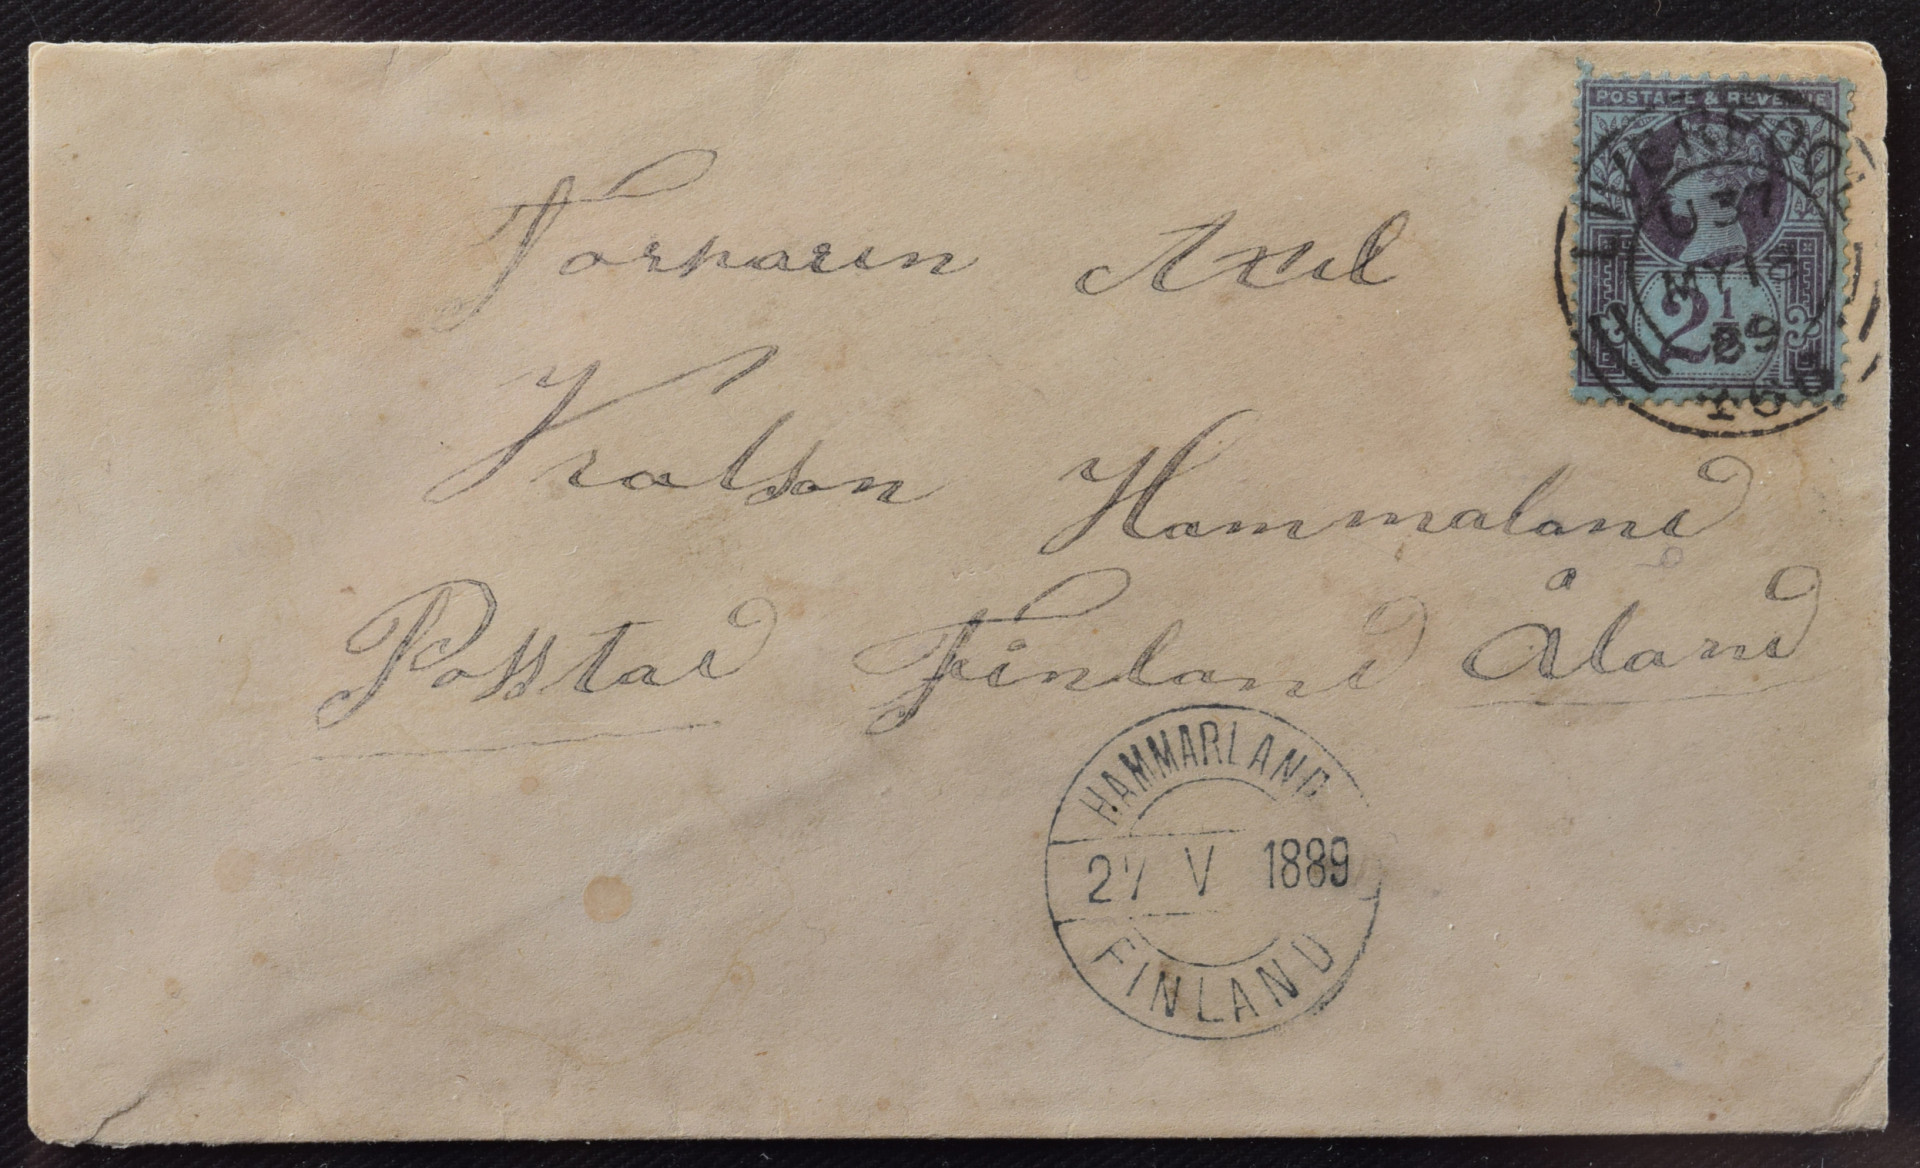 POSTAGE & REVENUE
LIVERPOOL
MY 1
89
2½
466
Torparen Axel
Kralson Hammaland
Posstad Finland Åland
HAMMARLAND
27 V 1889
FINLAND